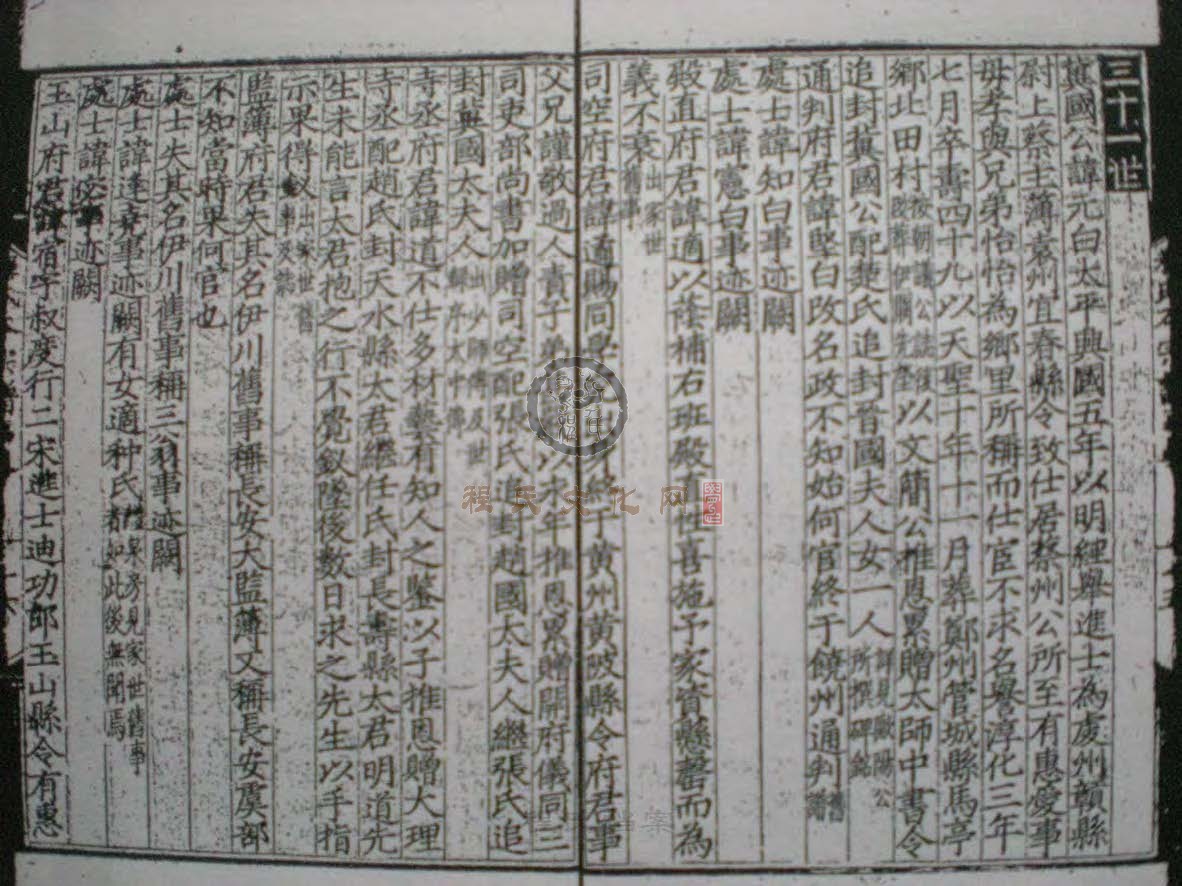 三十一世
冀國公諱元白太平興國五年以明經舉進士為虔州贛縣
尉上蔡主薄袁州宜春縣令致仕居蔡州公所至有惠愛事
母孝與兄弟怡怡為鄉里所稱而仕宦不求名譽淳化三年
七月卒壽四十九以天聖十年十一月葬鄭州管城縣馬亭
鄉北田村 後以文簡公推恩累贈太師中書令
追封冀國公配楚氏追封晉國夫人女一人詳見歐陽公所撰碑銘
通判府君諱堅白改名政不知始何官終于饒州通判舊譜
處士諱知白事迹闕
處士諱憲白事迹闕
殿直府君諱適以蔭補右班殿直性喜施予家資懸罄而為
義不衰出家世舊事
司空府君諱遹賜同學究出身終于黃州黃陂縣令府君事
父兄謹敬過人責子弟 以永年推恩累贈開府儀同三
司吏部尚書加贈司空配張氏追封趙國太夫人繼張氏追
封冀國太夫人
寺丞府君諱道不仕多材藝有知人之鑒以子推恩贈大理
寺丞配趙氏封天水縣太君繼任氏封長壽縣太君明道先
生未能言太君抱之行不覺釵墜後數日求之先生以手指
示果得釵出家世舊事及
監薄府君失其名伊川舊事稱長安大監薄又稱長安虞部
不知當時果何官也
處士失其名伊川舊事稱三公 事迹闕
處士諱逢堯事迹闕有女適种氏 見家世舊事 如此後無聞焉
處士諱 事迹闕
玉山府君諱宿字叔度行二宋進士迪功郎玉山縣令有惠
程氏文化网